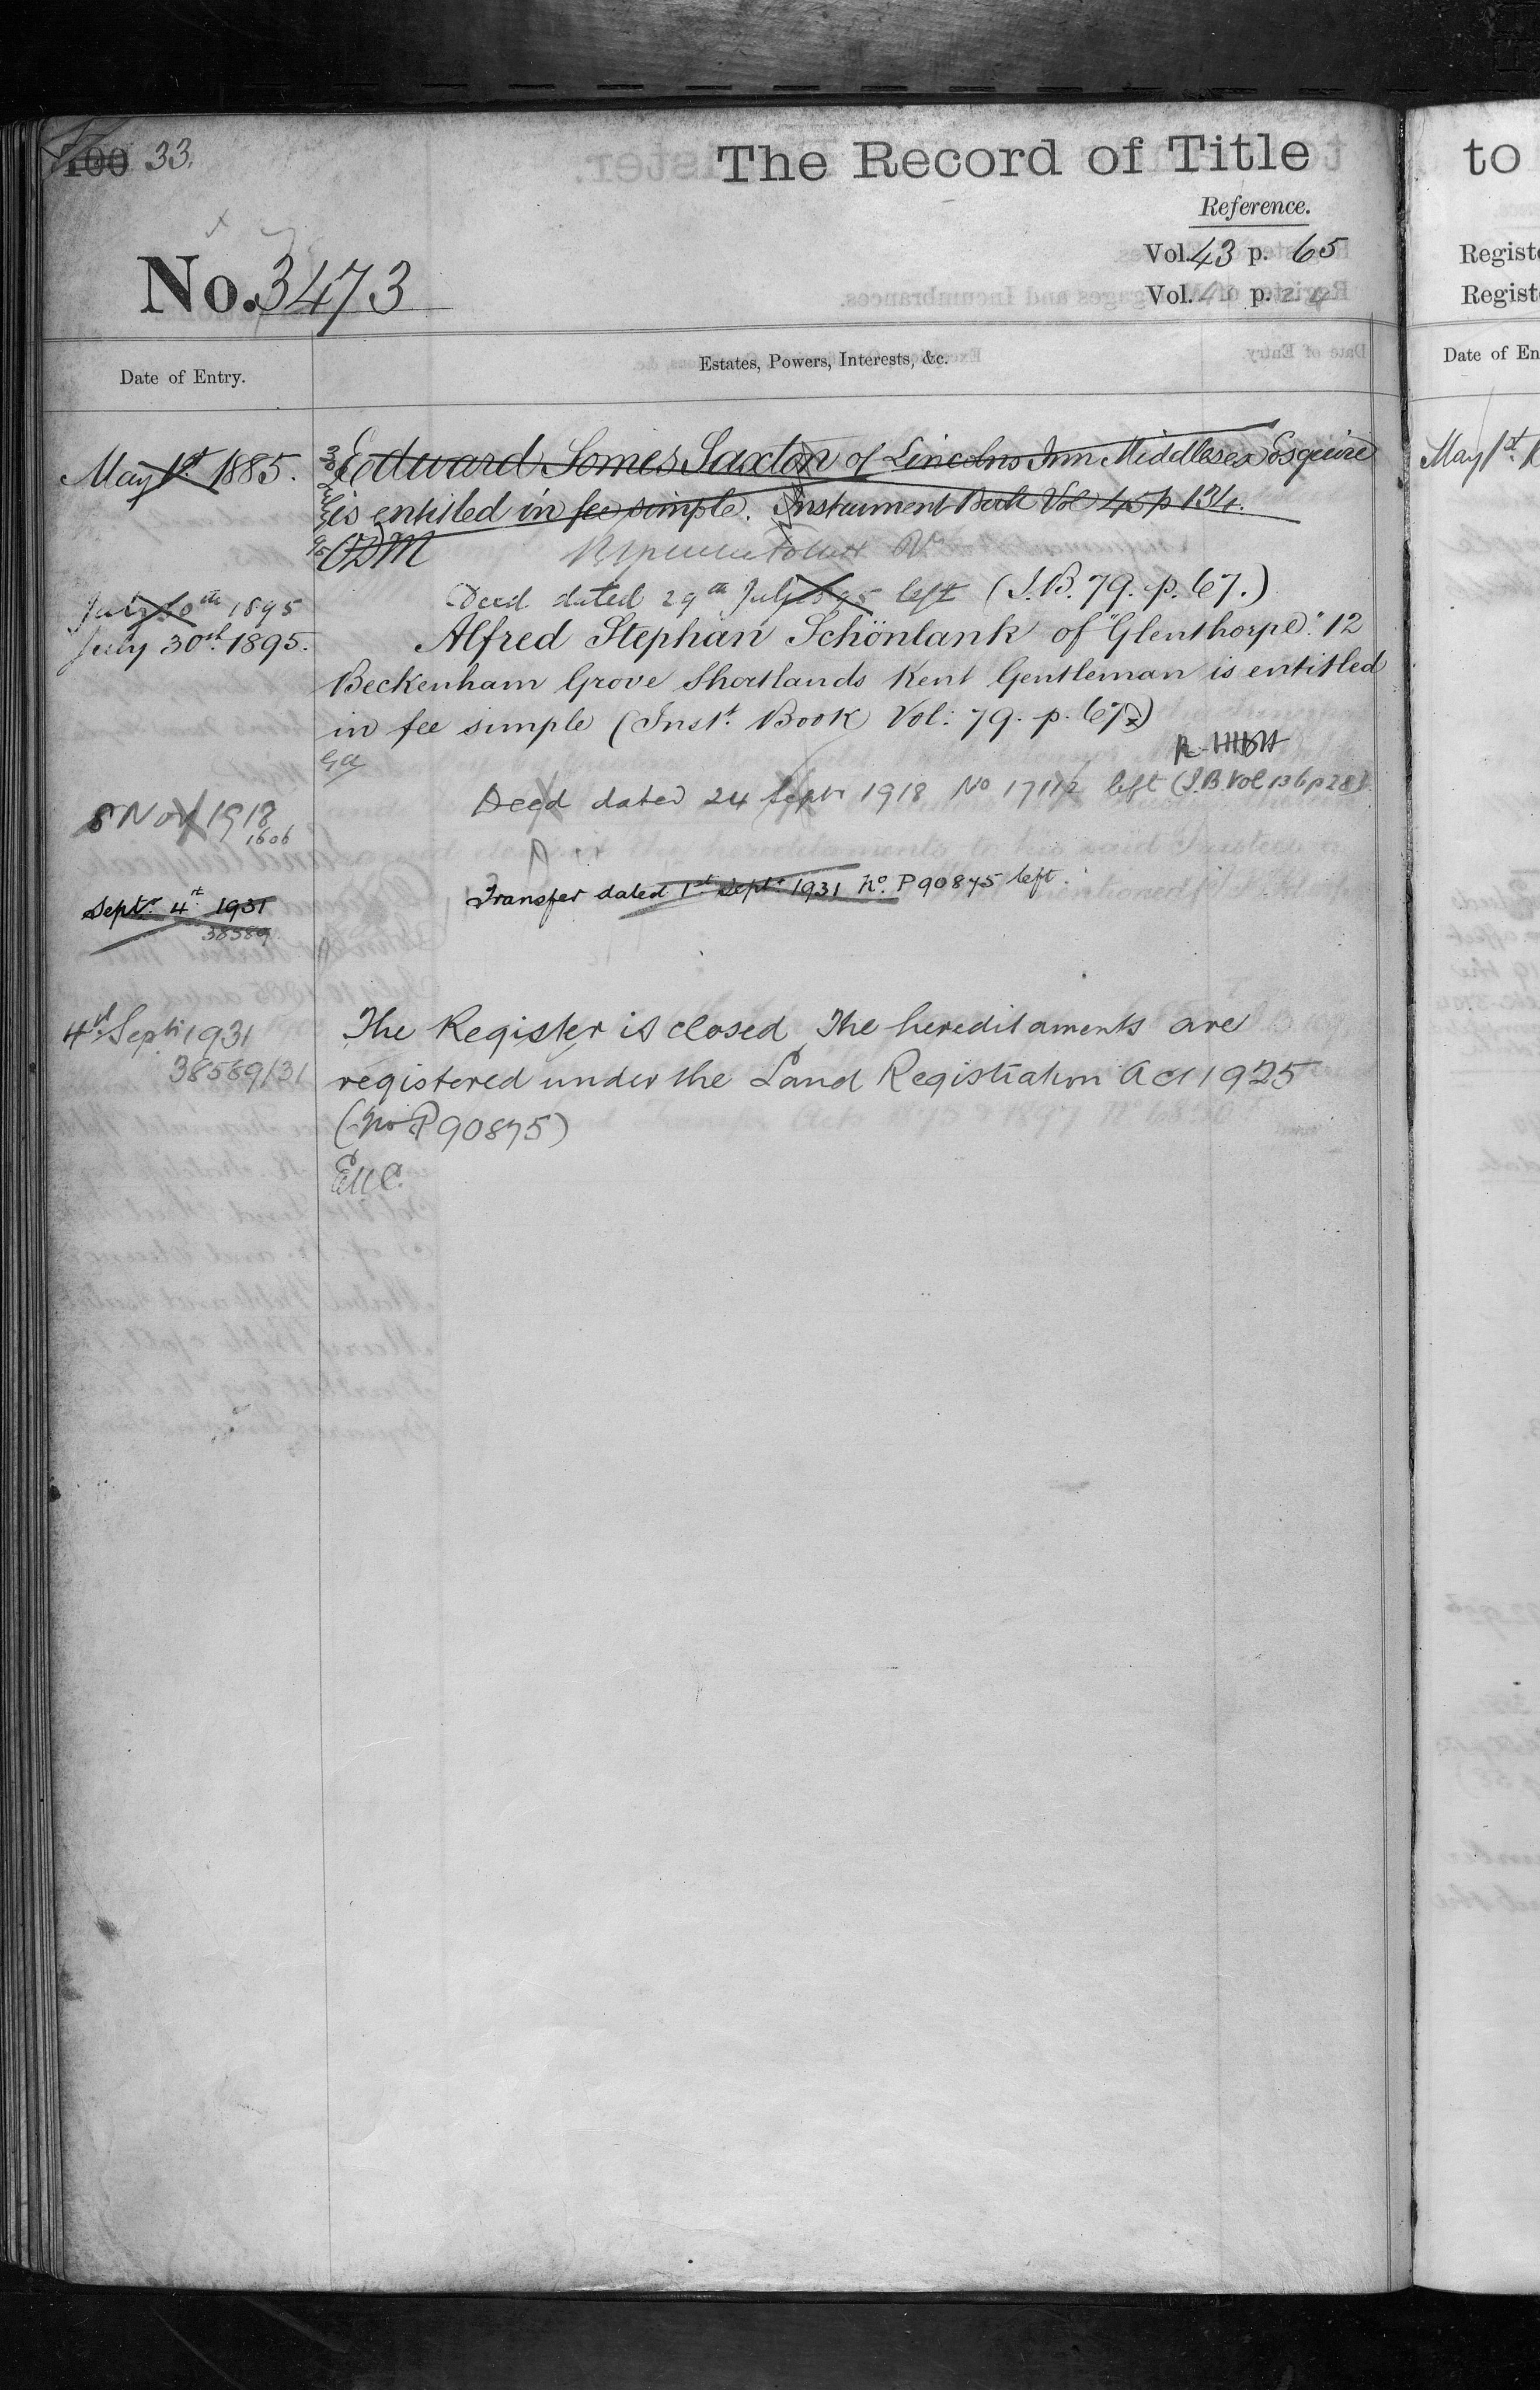 100 33.
The Record of Title
Reference.
Vol. 43 p. 65
Vol. 41 p.
No. 3473
Date of Entry.
Estates, Powers, Interests, &c.
May 1st 1885.
Edward Somes Saxton of Lincolns Inn Middlesex Esquire
is entitled in fee simple. Instrument Book Vol 45 p 134.
July 30th 1895
Deed dated 29th July 1895 left (I.B. 79. p. 67.)
July 30th 1895.
Alfred Stephan Schönlank of "Glenthorpe" 12
Beckenham Grove Shortlands Kent Gentleman is entitled
in fee simple (Inst. Book Vol: 79. p. 67)
8 Nov 1918
1606
Deed dated 24 Septr 1918 No 17112 left (I.B Vol 136 p 28)
Septr 4th 1931
38589
Transfer dated 1st Septr 1931 No. P90875 left.
4th Sept 1931
38589/31
The Register is closed. The hereditaments are
registered under the Land Registration Act 1925
(No P90875)
to
Regist
Regist
Date of En
May 1st